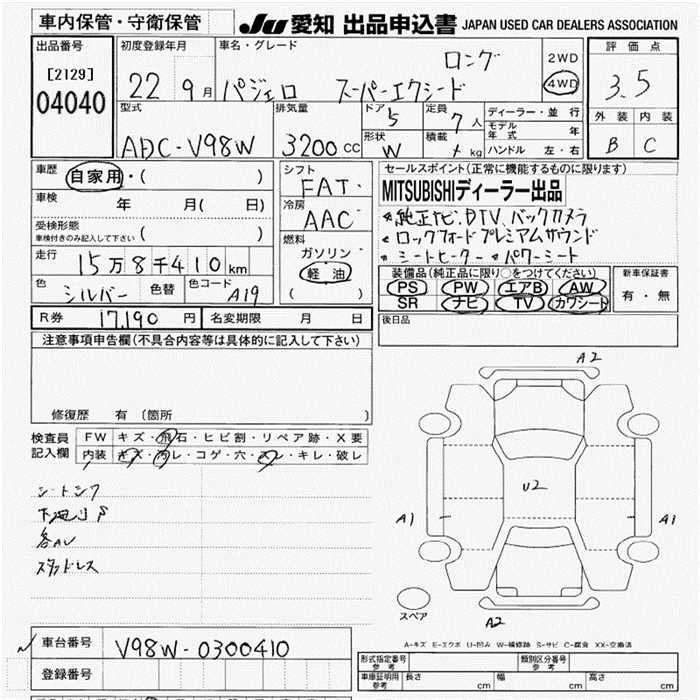 車内保管・守衛保管
JU 愛知 出品申込書 JAPAN USED CAR DEALERS ASSOCIATION
出品番号
[2129]
04040
初度登録年月
22 9月
車名・グレード
パジェロ スーパーエクシード ロング
2WD
4WD
評価点
3.5
外装 内装
B C
型式
ADC-V98W
排気量
3200 CC
ドア 5
形状 W
定員 7 人
積載 kg
ディーラー・並行
モデル年式 年
ハンドル 左・右
車歴
自家用・( )
車検 年 月( 日)
受検形態
車検付きのみ記入して下さい ( )
走行
15万8千410km
色
シルバー
色替
色コード
A19
シフト
FAT
冷房
AAC
燃料
ガソリン
軽油
( )
セールスポイント(正常に機能するものに限ります)
MITSUBISHIディーラー出品
純正ナビ.DTV.バックカメラ
ロックフォードプレミアムサウンド
シートヒーター パワーシート
装備品(純正品に限り○をつけてください)
PS PW エアB AW
SR ナビ TV カワシート
新車保証書
有・無
R券 17,190 円
名変期限 月 日
後日品
注意事項申告欄(不具合内容等は具体的に記入して下さい)
修復歴 有 〔箇所 〕
検査員
記入欄
FW キズ・飛石・ヒビ割・リペア跡・X要
内装 キズ・汚レ・コゲ・穴・スレ・キレ・破レ
シートシワ
各AW
スタッドレス
A2
U2
A1
A1
A2
スペア
A-キズ E-エクボ U-凹み W-補修跡 S-サビ C-腐食 XX-交換済
車台番号
V98W-0300410
登録番号
形式指定番号
参考
類別区分番号
参考
車庫証明用
参考
長さ cm
幅 cm
高さ cm